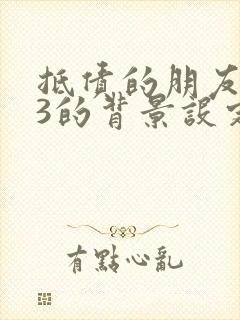 抵债的朋友
3的背景設定
有點心亂